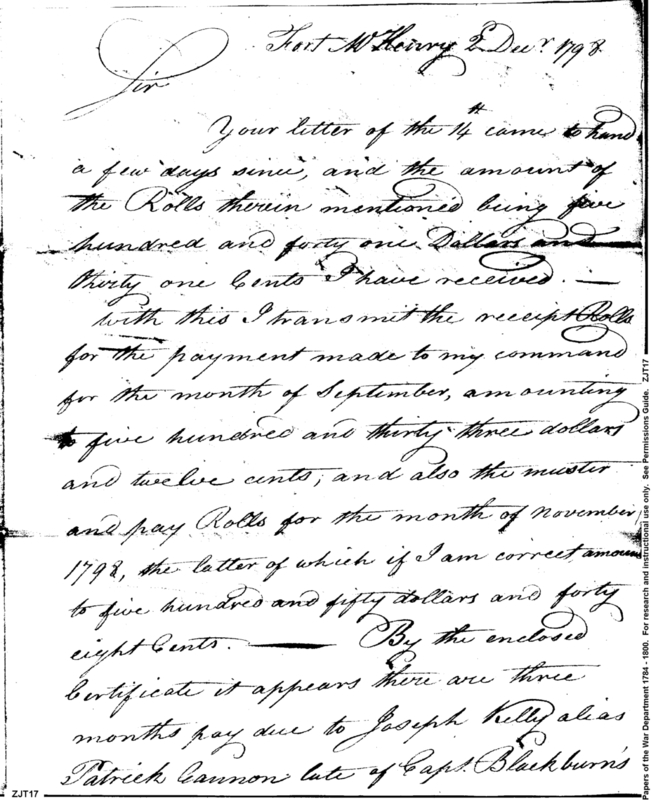 Fort McHenry 2 Decr. 1798
Sir
Your letter of the 14th came to hand
a few days since, and the amount of
the Rolls therein mentioned being five
hundred and forty one Dollars and
thirty one Cents I have received. —
with this I transmit the receipt Rolls
for the payment made to my command
for the month of September, amounting
to five hundred and thirty three dollars
and twelve cents; and also the muster
and pay Rolls for the month of november
1798, the latter of which if I am correct, amount
to five hundred and fifty dollars and forty
eight Cents. — By the enclosed
Certificate it appears there are three
months pay due to Joseph Kelly alias
Patrick Cannon late of Capt. Blackburn's
ZJT17
Papers of the War Department 1784 - 1800. For research and instructional use only. See Permissions Guide. ZJT17